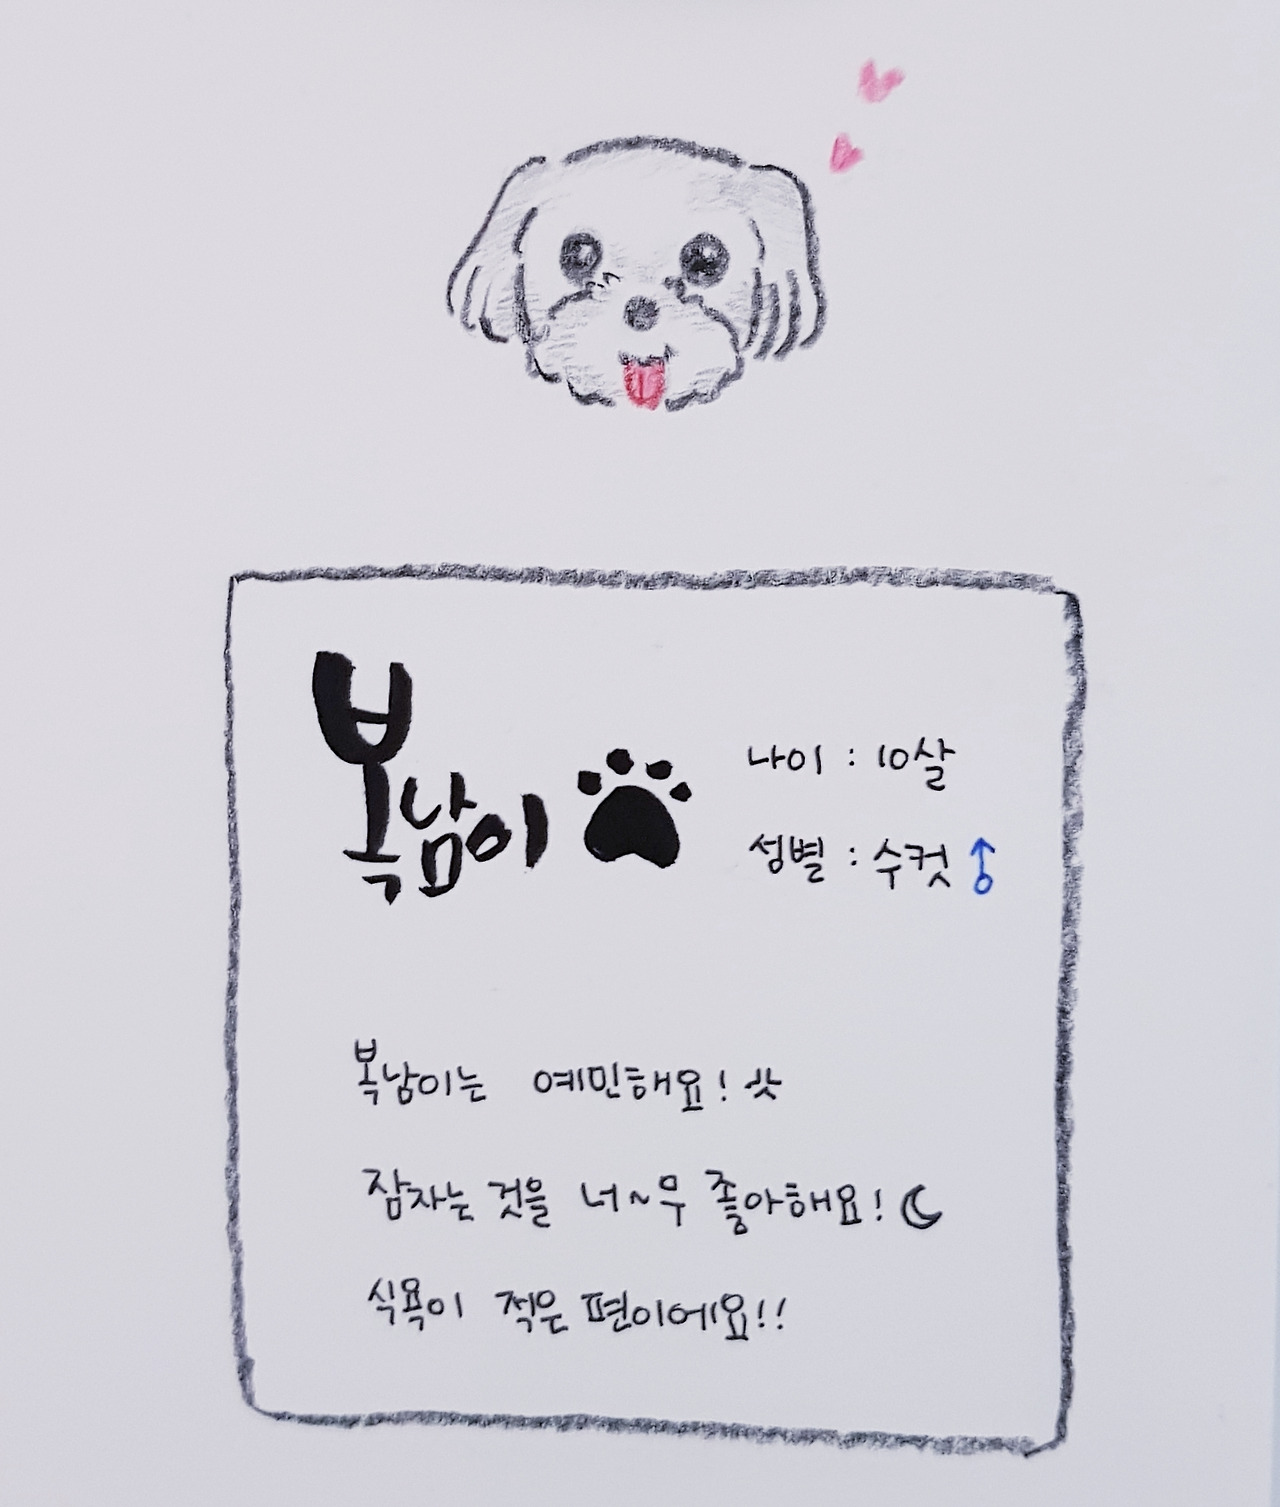 복남이
나이 : 10살
성별 : 수컷 ♂
복남이는 예민해요!
잠자는 것을 너~무 좋아해요!
식욕이 적은 편이에요!!